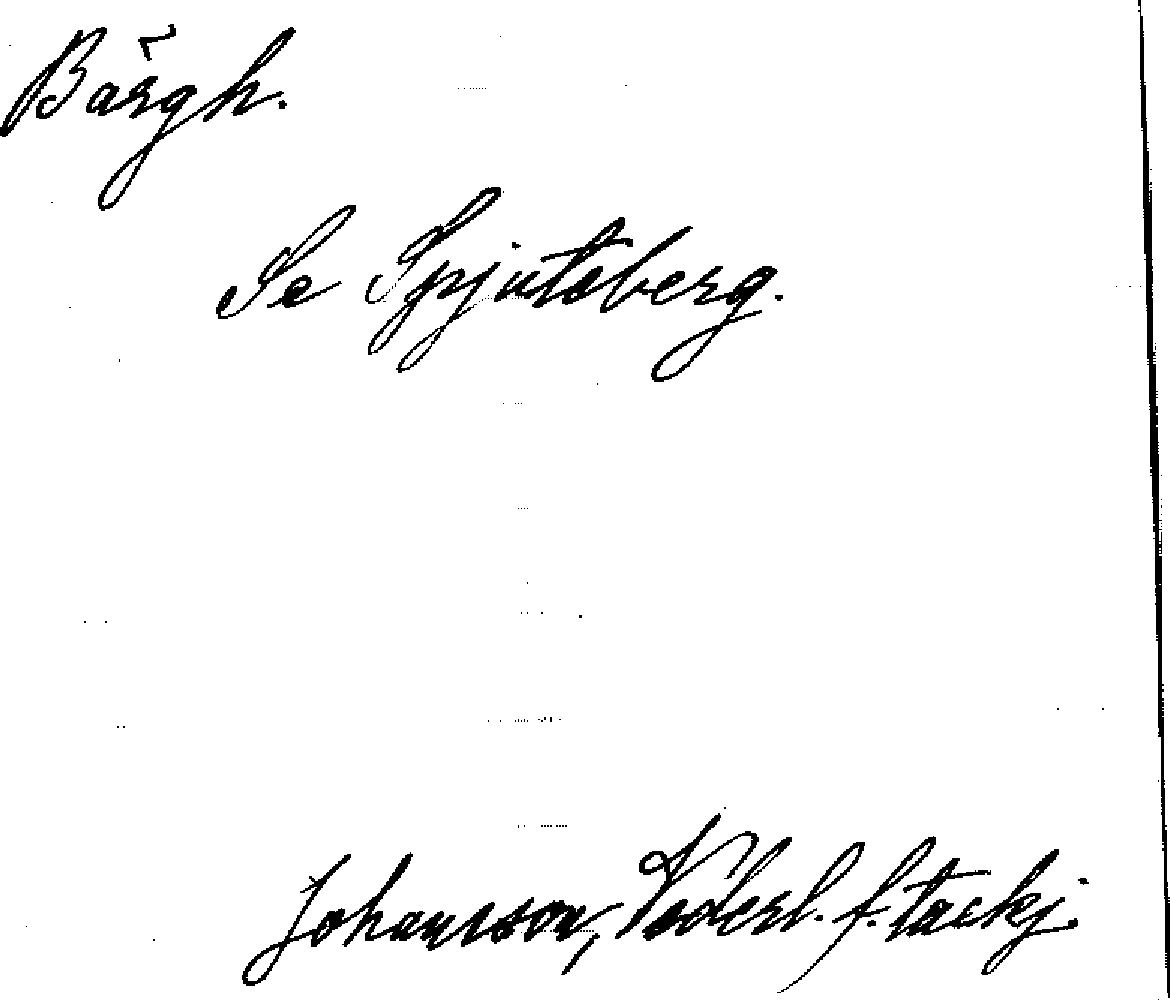 Bärgh.
Se Spjutsberg.
Johansson, Vederl. f. tackj.